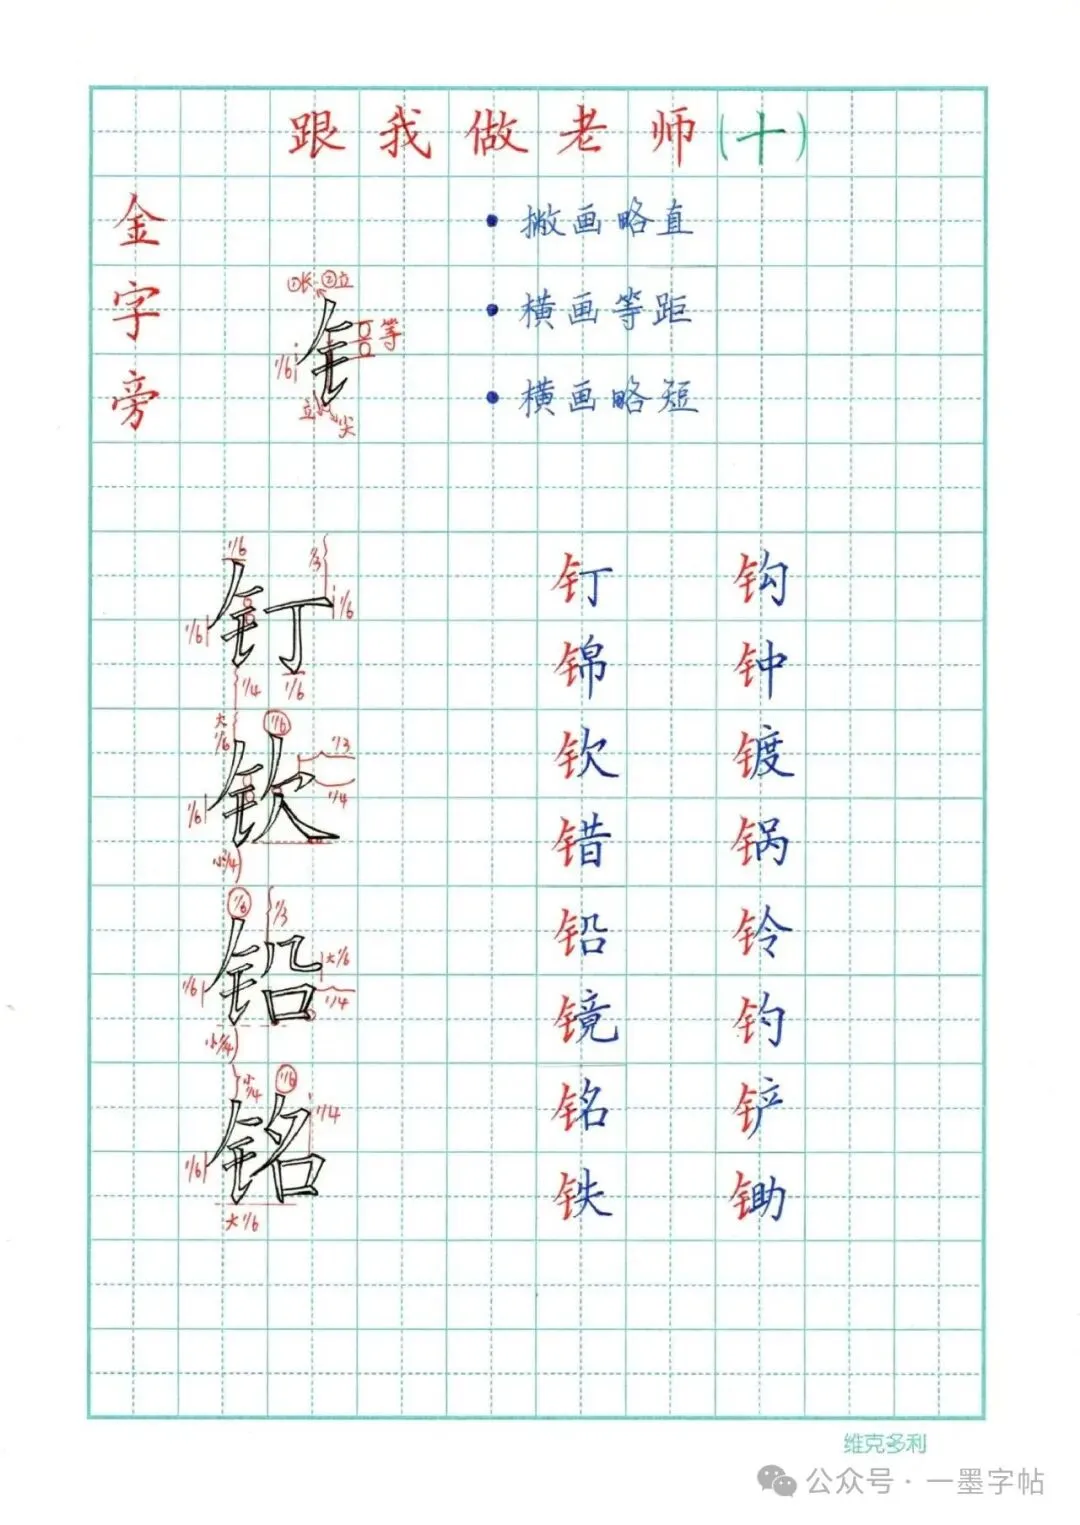 跟我做老师(十)
金字旁
①长 ②立
钅
等
1/6
立
尖
• 撇画略直
• 横画等距
• 横画略短
1/6 1/3
钉
1/6 1/6
1/4 1/6
大1/6 1/6 1/3
钦
1/6 1/4
小1/4
1/6 1/3
铅
1/6 大1/6
1/4
小1/4
小1/4 1/6
铭
1/4
1/6
大1/6
钉 钩
锦 钟
钦 镀
错 锅
铅 铃
镜 钓
铭 铲
铁 锄
维克多利
公众号·一墨字帖